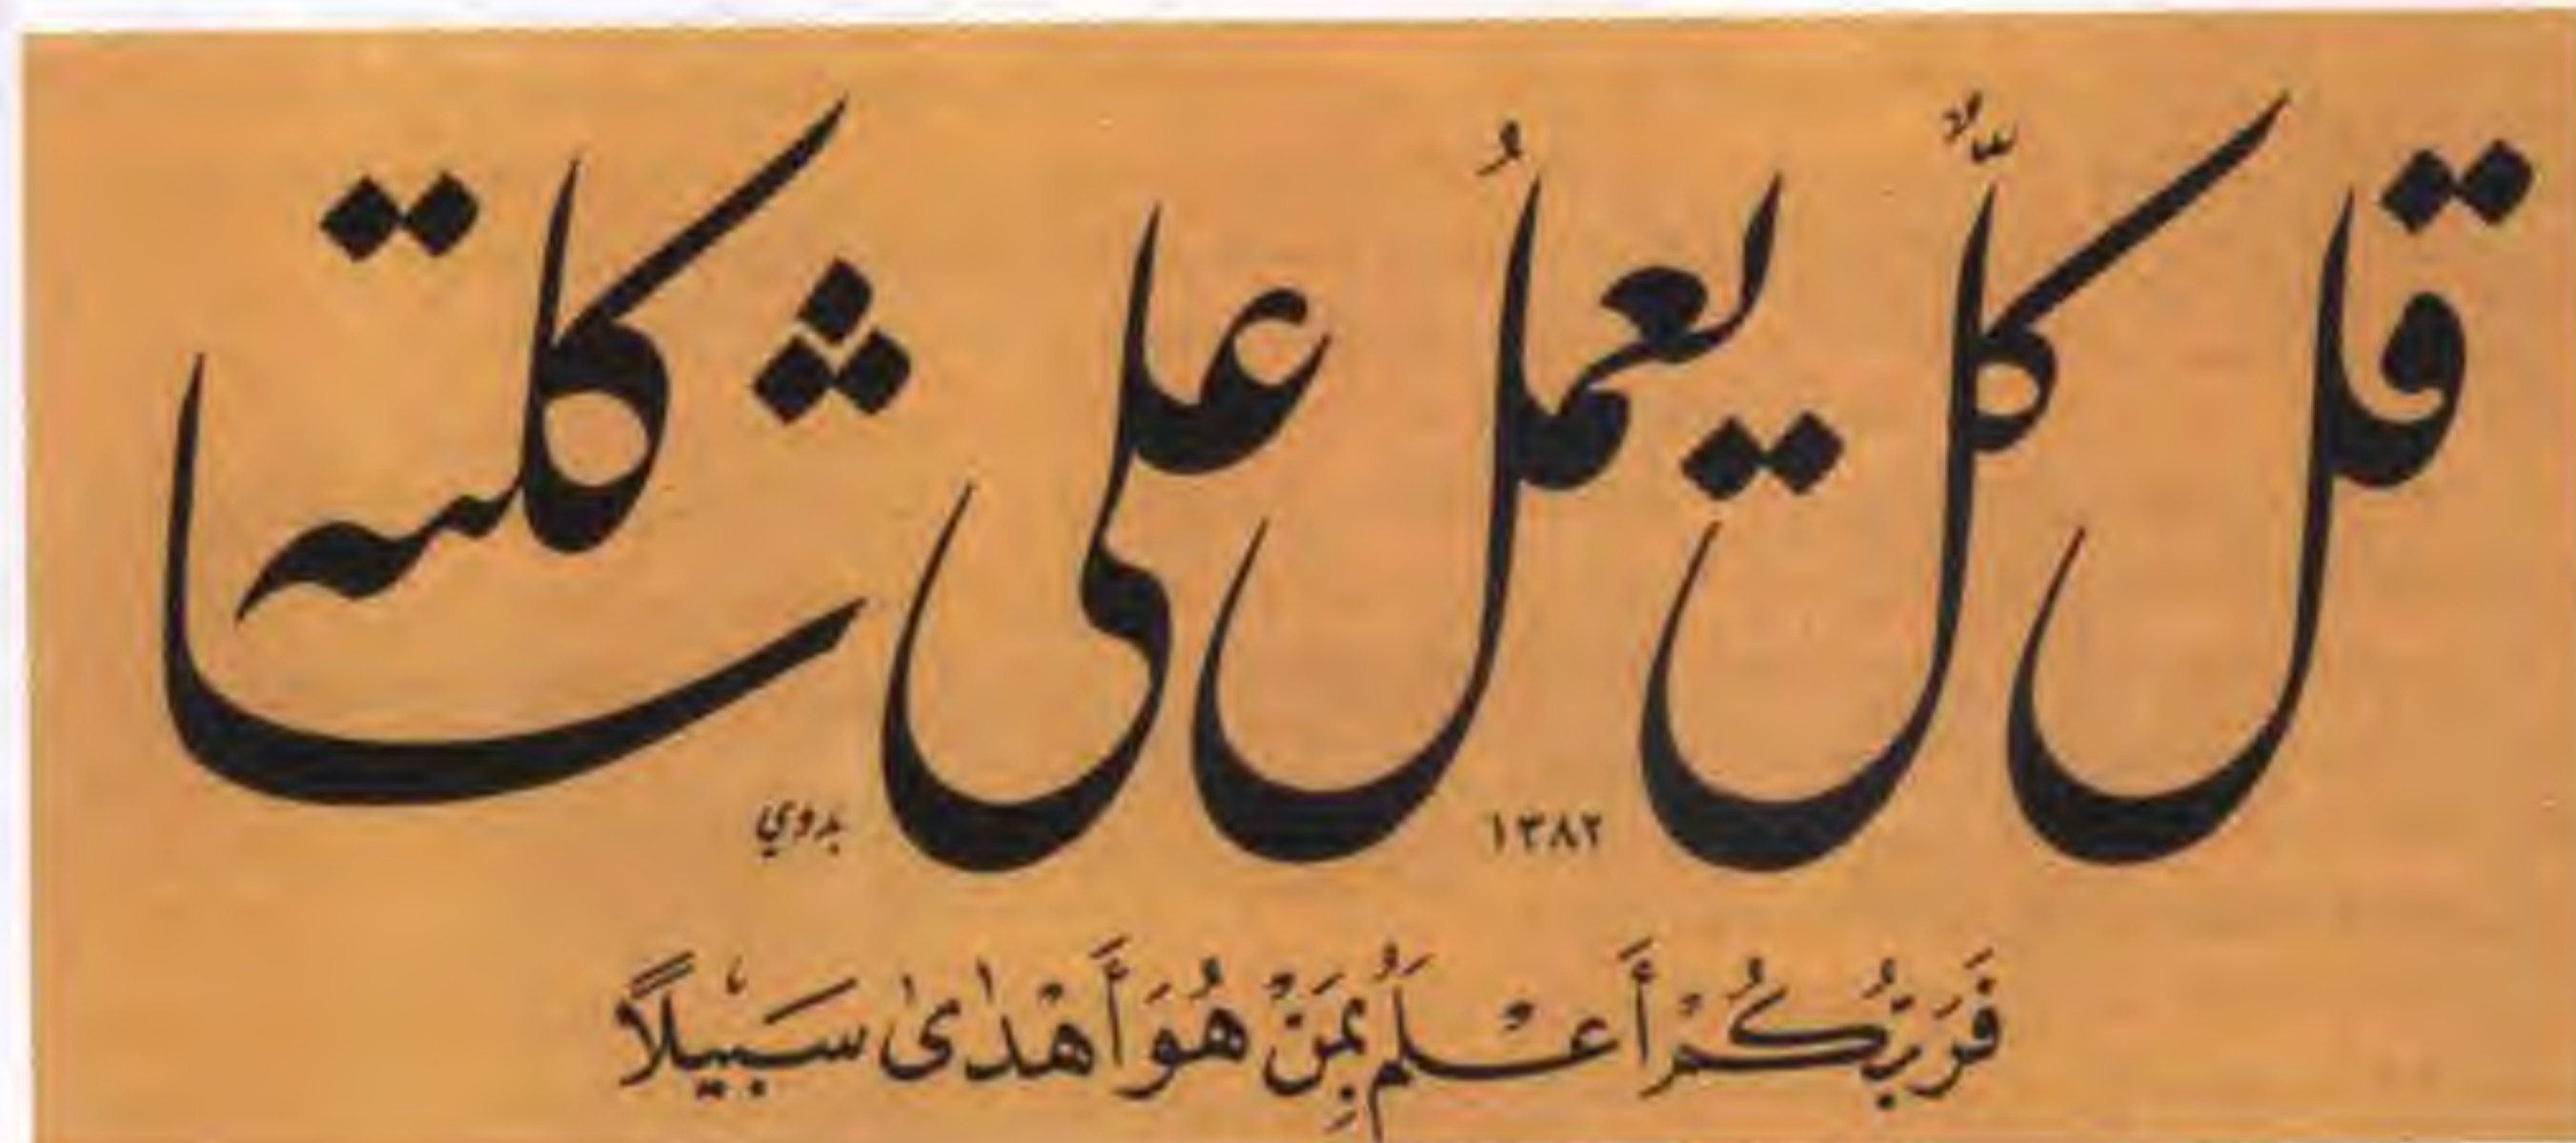 قل كلٌّ يعملُ على شاكلته
١٣٨٢ بدوي
فَرَبُّكُمْ أَعْلَمُ بِمَنْ هُوَ أَهْدٰىٰ سَبيلاً